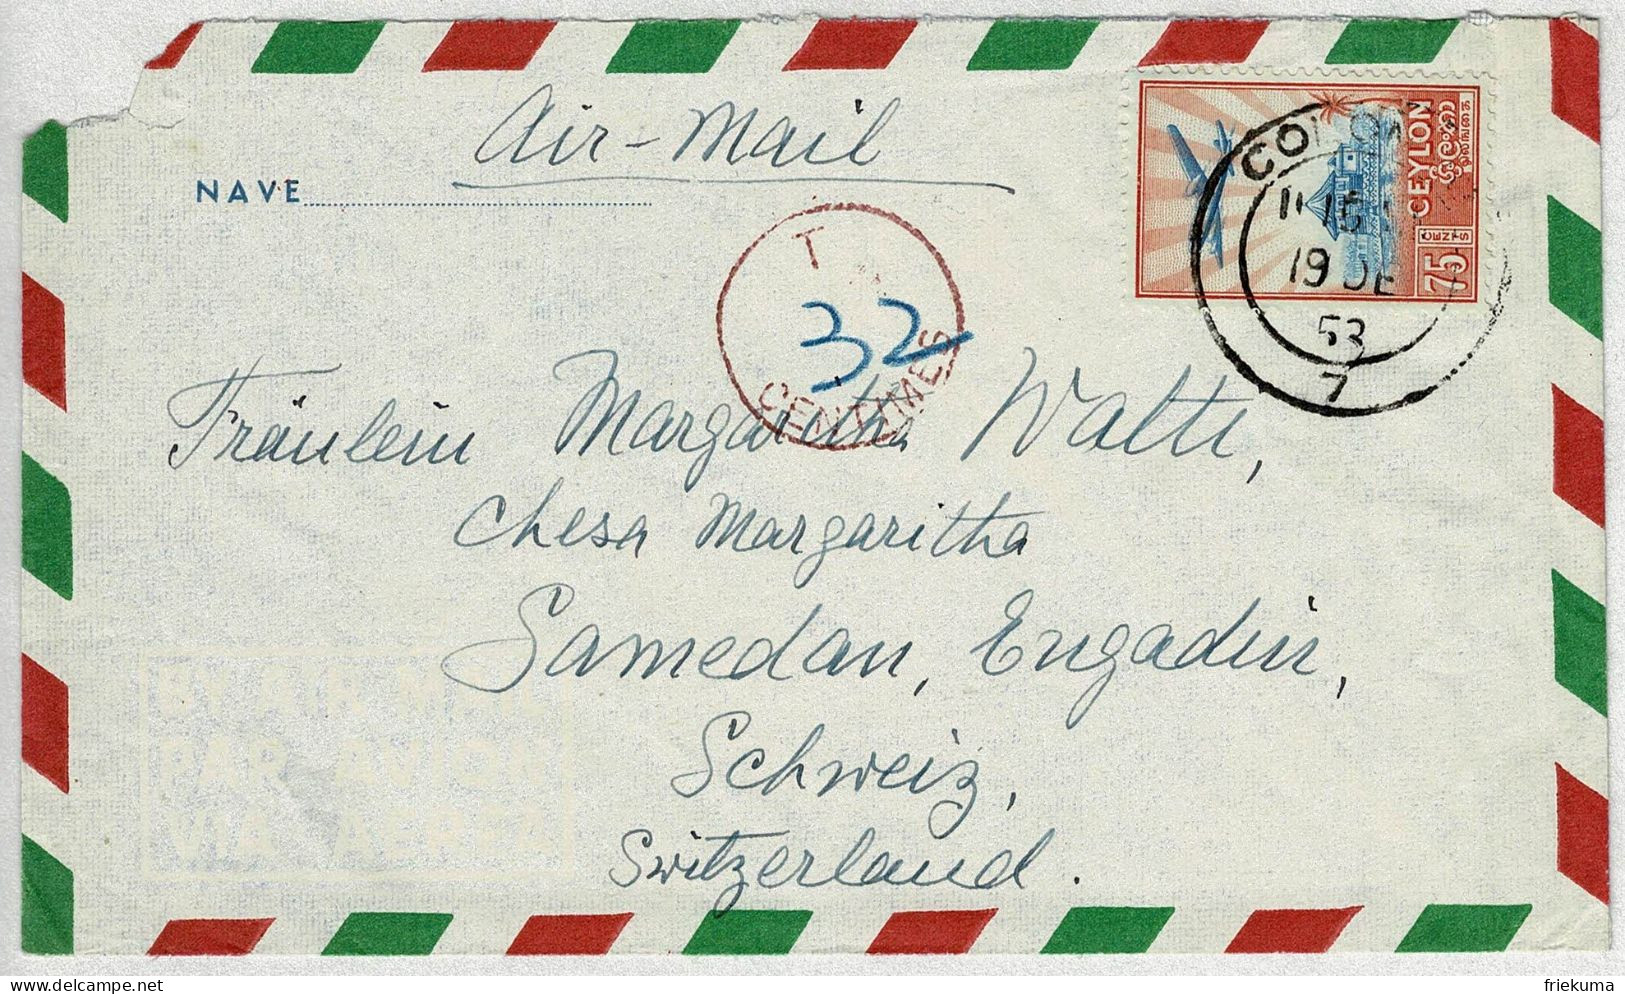 Air-Mail
NAVE
CEYLON
75
CENTS
19 DE
53
7
T
32
CENTIMES
Fräulein Margaritha Watti,
Chesa Margaritha
Samedan, Engadin,
Schweiz,
Switzerland.
BY AIR MAIL
PAR AVION
VIA AEREA
friekuma